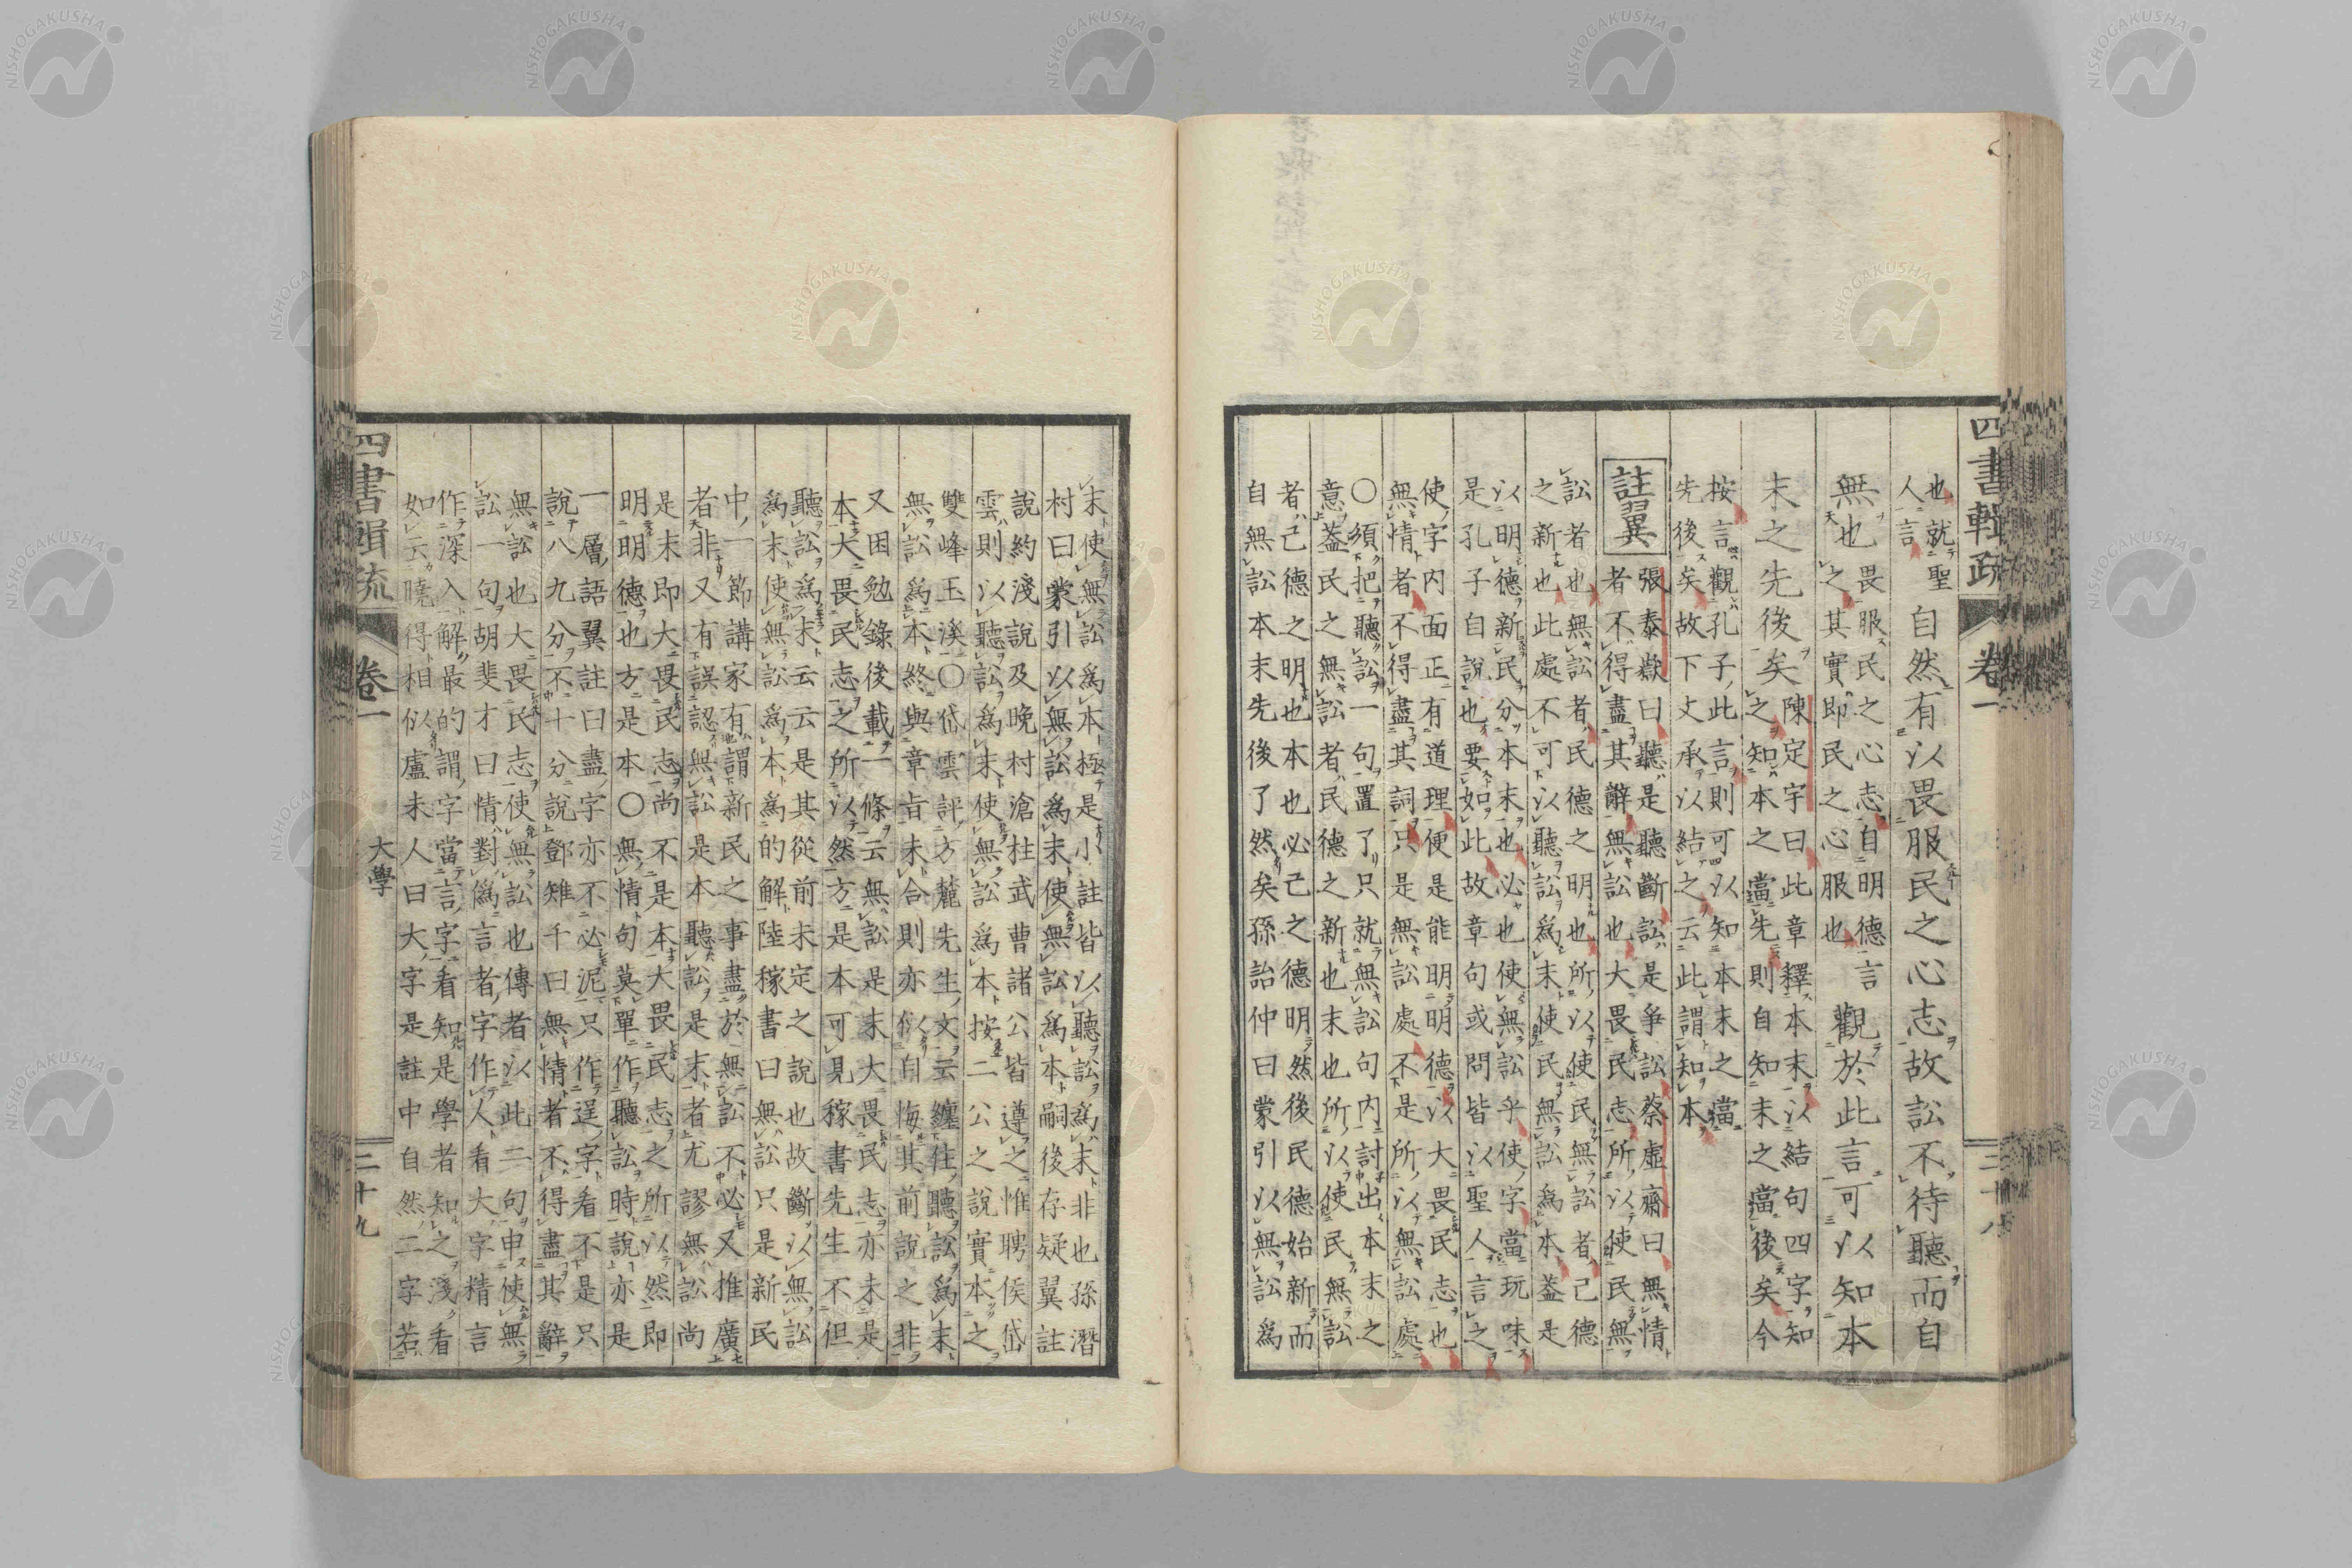 四書輯疏 卷一 三十八
也就聖
人言
自然有以畏服民之心志故訟不待聽而自
無也
畏服民之心志自明德言
之其實即民之心服也
觀於此言可以知本
末之先後矣
陳定宇曰此章釋本末以結句四字知
之知本之當先則自知末之當後矣今
按言觀孔子此言則可以知本末之當
先後矣故下文承以結之云此謂知本
註翼
張泰嶽曰聽是聽斷訟是爭訟蔡虛齋曰無情
者不得盡其辭無訟也大畏民志所以使民無
訟者也無訟者民德之明也所以使民無訟者己德
之新也此處不可以聽訟爲末使民無訟爲本蓋是
以明德新民分本末也必也使無訟乎使字當玩味
是孔子自說也要如此故章句或問皆以聖人言之
使字內面正有道理便是能明明德以大畏民志也
無情者不得盡其詞只是無訟處不是所以無訟處
○須把聽訟一句置了只就無訟句內討出本末之
意蓋民之無訟者民德之新也末也所以使民無訟
者己德之明也本也必己之德明然後民德始新而
自無訟本末先後了然矣孫詒仲曰蒙引以無訟爲
末使無訟爲本極是小註皆以聽訟爲末非也孫潛
村曰蒙引以無訟爲末使無訟爲本嗣後存疑翼註
說約淺說及晚村滄柱武曹諸公皆遵之惟聘侯岱
雲則以聽訟爲末使無訟爲本按二公之說實本之
雙峰玉溪○岱雲評方麓先生文云纏住聽訟爲末
無訟爲本終與章旨未合則亦似自悔其前說之非
又困勉錄後載一條云無訟是末大畏民志亦未是
本大畏民志之所以然方是本可見稼書先生不但
聽訟爲末云云是其從前未定之說也故斷以無訟
爲末使無訟爲本爲的解陸稼書曰無訟只是新民
中一節講家有謂新民之事盡於無訟不必又推廣
者非又有誤認無訟是本聽訟是末者尤謬無訟尚
是末即大畏民志尚不是本大畏民志之所以然即
明明德也方是本○無情句莫單作聽訟時說亦是
一層語翼註曰盡字亦不必泥只作逞字看不是只
說八九分不十分說鄧雉千曰無情者不得盡其辭
無訟也大畏民志使無訟也傳者以此二句申使無
訟一句胡斐才曰情對僞言者字作人看大字精言
作深入解最的謂字當言字看知是學者知之淺看
如云曉得相似盧未人曰大字是註中自然二字若
四書輯疏 卷一 大學 三十九